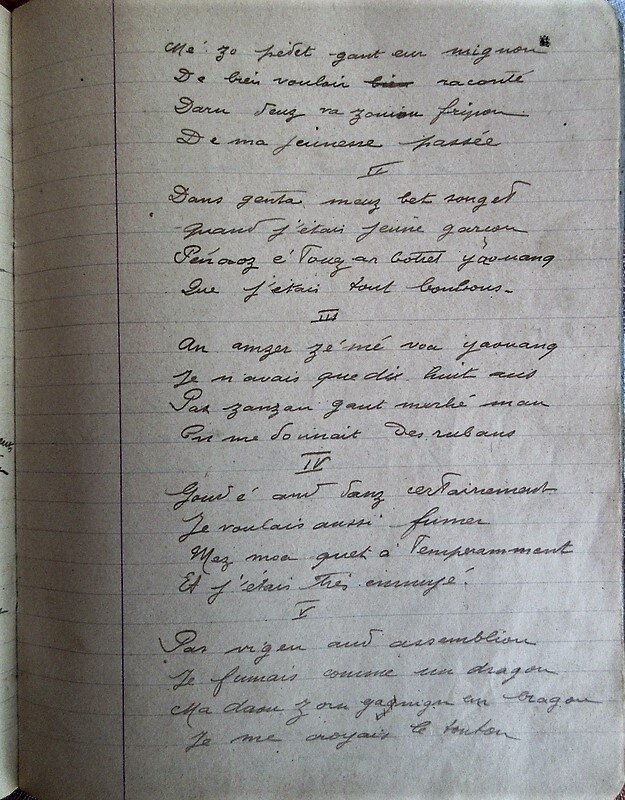 Mé zo pedet gant eur mignon
De bien vouloir bien raconté
Darn deuz va zonion fripon
De ma jeunesse passée
II
Dans genta meuz bet songet
quand j'étais jeune garcon
Penaoz é Touz ar botret yaouang
Que j'étais tout bonbons.
III
An amzer zé mé voa yaouang
Je n'avais que dix huit ans
Pas zanzan gant merhé man
On me donnait Des rubans
IV
Goudé and danz certainement
Je voulais aussi fumer
Mez moa quet à Temperamment
Et j'étais Très ennuyé.
V
Pas vigen and assemblion
Je fumais comme un dragon
Ma daou zorn en bragou
Je me croyais le tonton